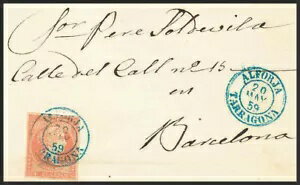 Sor Pere Soldevila
Calle del Call nº 15
en
Barcelona
ALFORJA
20
MAY
59
TARRAGONA
ALFORJA
20
59
TARRAGONA